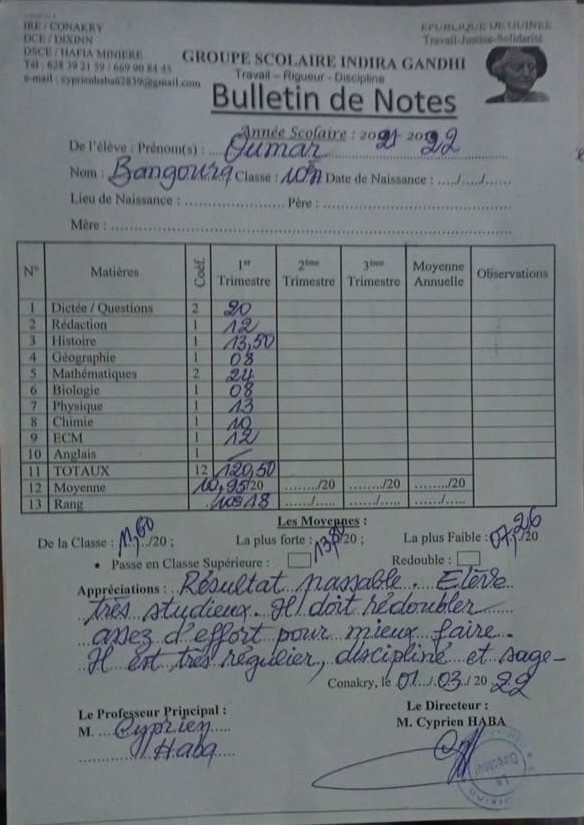 IRE / CONAKRY
DCE / DIXINN
DSCE / HAFIA MINIERE
Tél : 628 39 21 59 / 669 90 84 45
e-mail : cyprienhaba62839@gmail.com
REPUBLIQUE DE GUINEE
Travail-Justice-Solidarité
GROUPE SCOLAIRE INDIRA GANDHI
Travail – Rigueur - Discipline
Bulletin de Notes
Année Scolaire : 2021- 2022
De l'élève : Prénom(s) : Oumar
Nom : Bangoura Classe : 10è Date de Naissance : ...../...../......
Lieu de Naissance : .................. Père : ..................
Mère : ..................
N° Matières Coéf. 1er Trimestre 2ème Trimestre 3ème Trimestre Moyenne Annuelle Observations
1 Dictée / Questions 2 20
2 Rédaction 1 12
3 Histoire 1 13,50
4 Géographie 1 08
5 Mathématiques 2 24
6 Biologie 1 08
7 Physique 1 13
8 Chimie 1 10
9 ECM 1 12
10 Anglais 1 –
11 TOTAUX 12 120,50
12 Moyenne 10,95/20 ......../20 ......../20 ......../20
13 Rang ....../...... ....../...... ....../......
Les Moyennes :
De la Classe : 11,60 /20 ; La plus forte : 13,80 /20 ; La plus Faible : 07,26 /20
• Passe en Classe Supérieure : Redouble :
Appréciations : Résultat passable. Elève
très studieux. Il doit rédoubler
assez d'effort pour mieux faire.
Il est très régulier, discipliné et sage-
Conakry, le 01 / 03 / 20 22
Le Professeur Principal :
M. Cyprien
Haba
Le Directeur :
M. Cyprien HABA
Le Directeur